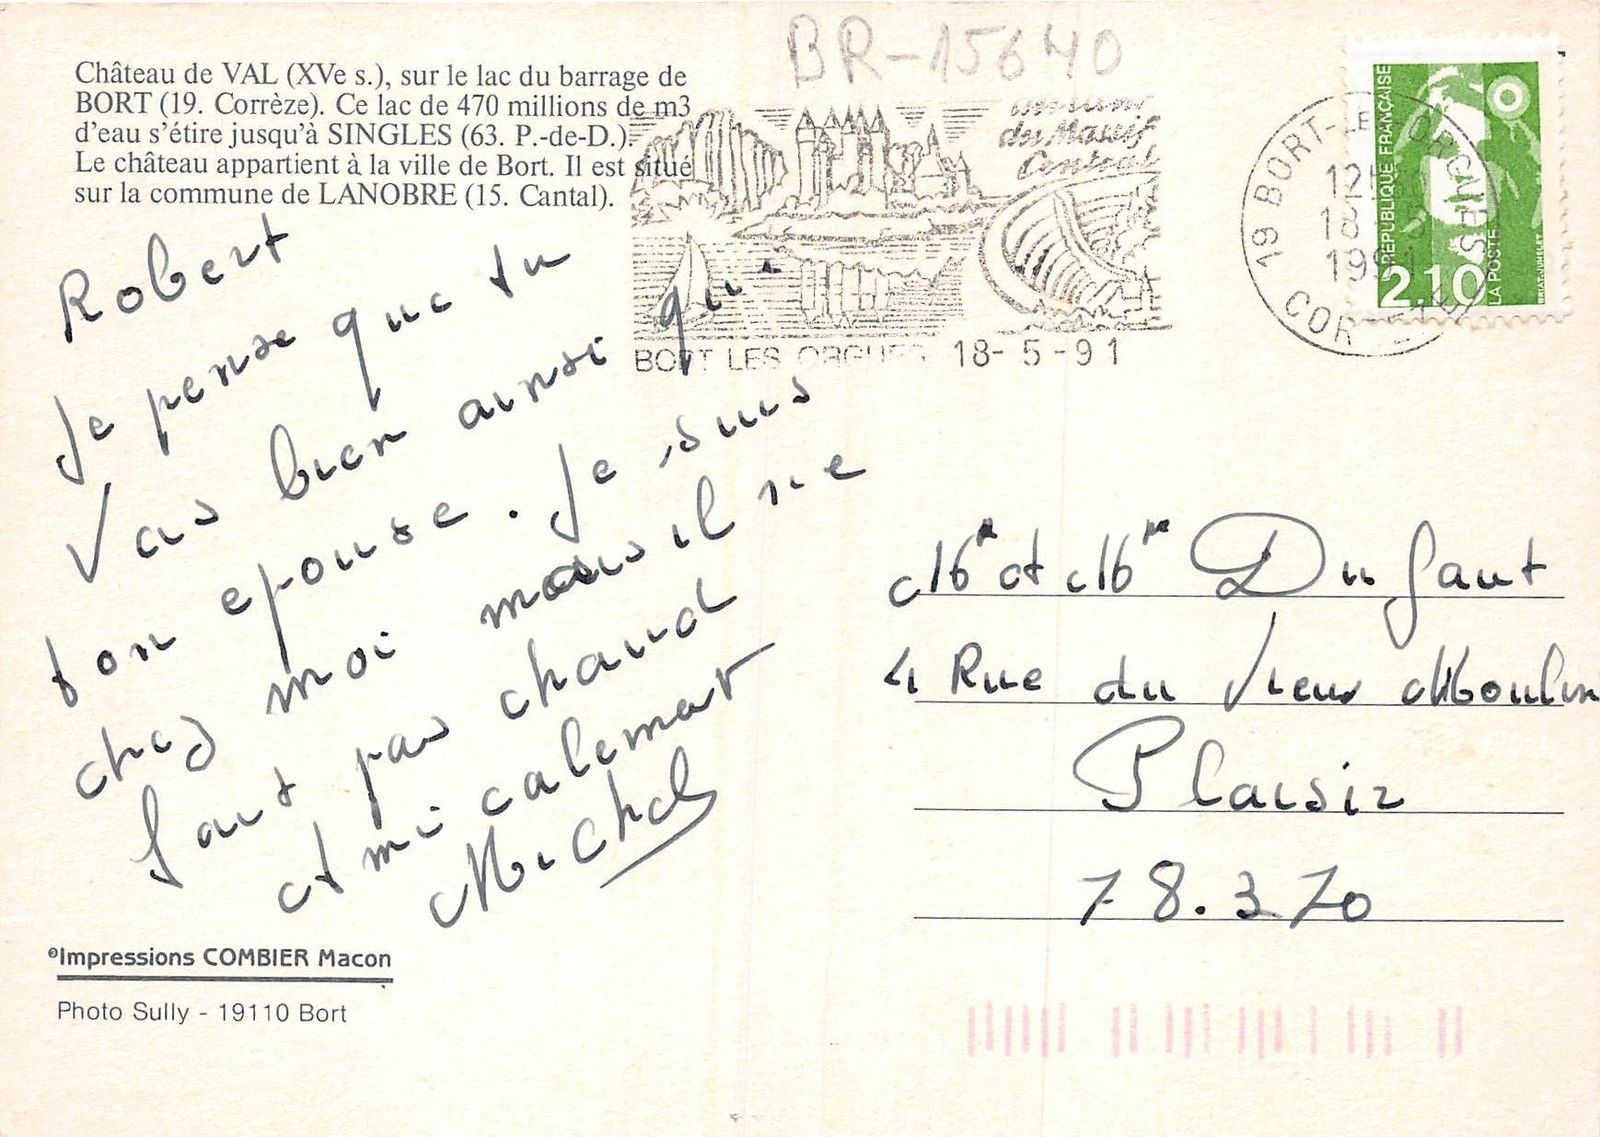 BR-15640
Château de VAL (XVe s.), sur le lac du barrage de
BORT (19. Corrèze). Ce lac de 470 millions de m3
d'eau s'étire jusqu'à SINGLES (63. P.-de-D.).
Le château appartient à la ville de Bort. Il est situé
sur la commune de LANOBRE (15. Cantal).
du Massif
Central
BORT LES ORGUES 18-5-91
19 BORT-LES-ORGUES
12
18-5
1991
CORREZE
RÉPUBLIQUE FRANÇAISE
2,10
LA POSTE
Robert
Je pense que tu
Vas bien ainsi qu
ton epouse. Je suis
chez moi mais il ne
fait pas chaud
et mi calemat
Michel
Mr et Me Dufaut
4 Rue du Vieux Moulin
Plaisir
78.370
©Impressions COMBIER Macon
Photo Sully - 19110 Bort